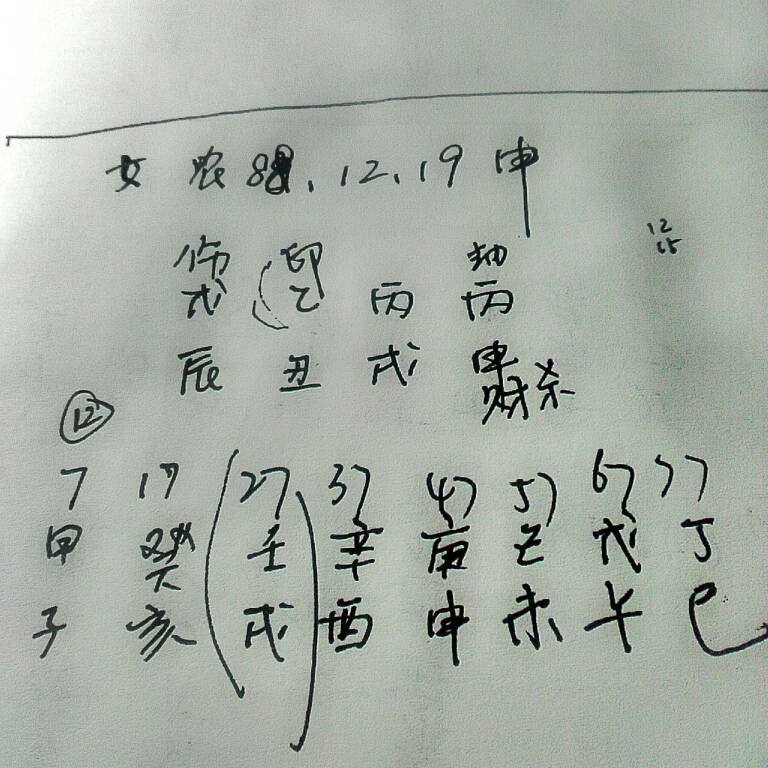 女 农 88.12.19 申
12
15
伤 印 劫
戊 乙 丙 丙
辰 丑 戌 申
财杀
12
7 17 27 37 47 57 67 77
甲 癸 壬 辛 庚 己 戊 丁
子 亥 戌 酉 申 未 午 巳